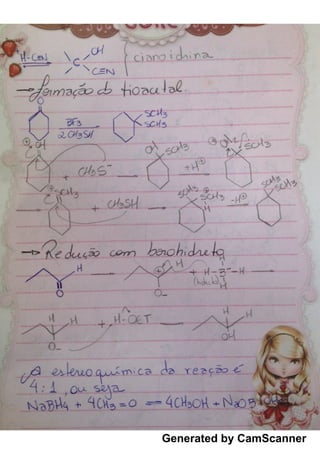 H-C≡N
C
OH
C≡N
cianoidrina
→ formação do tioacetal
O
BF3
2CH3SH
SCH3
SCH3
⊕OH
+ CH3S⁻
OH
SCH3
+H⊕
SCH3
⊕SCH3
+ CH3SH
SCH3
-H⊕
SCH3
SCH3
→ Redução com borohidreto
H
O
H
O-
+ H-B-H
H
H
H H
O-
+ H-OET
H H
OH
A estereoquímica da reação é
4:1, ou seja
NaBH4 + 4CH3=O ⇌ 4CH3OH +
Generated by CamScanner